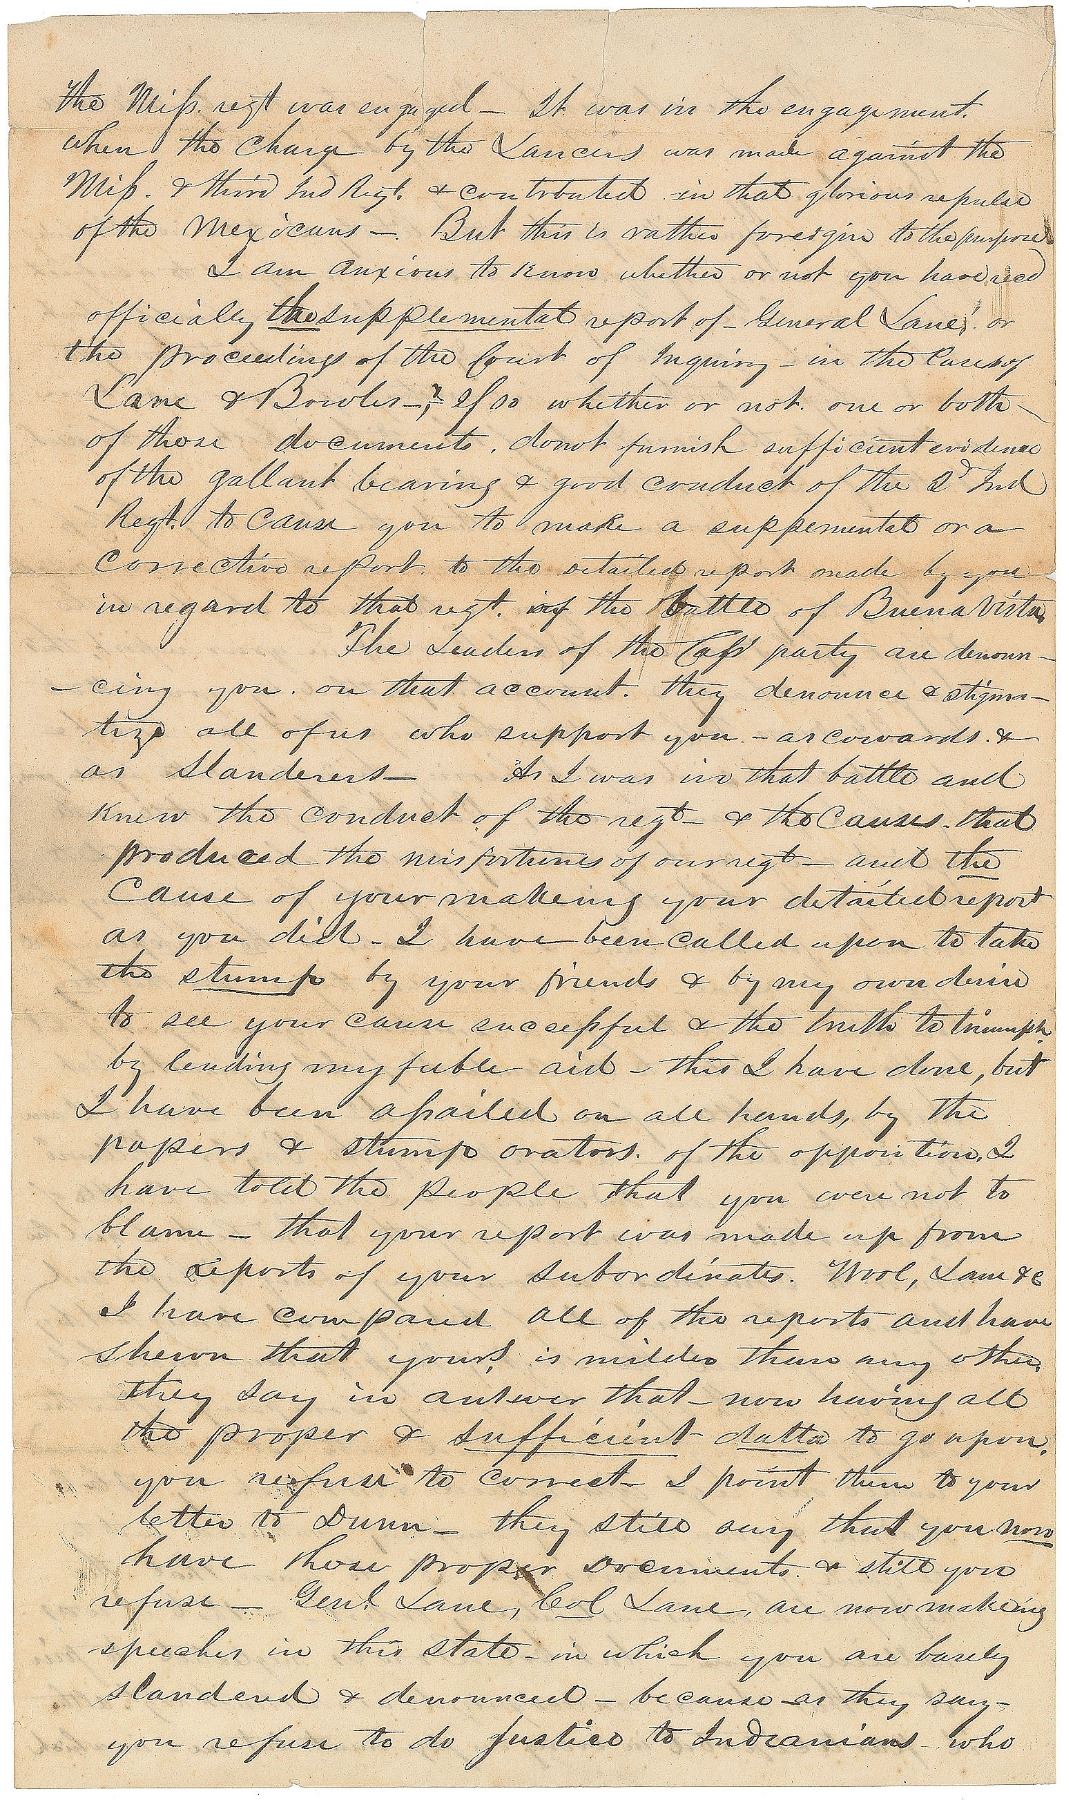 the Miss. regt was engaged – It was in the engagement.
when the charge by the Lancers was made against the
Miss. & third Ind Regt. & contributed in that glorious repulse
of the Mexicans –. But this is rather foreign to the purpose
I am anxious to know whether or not you have recd
officially the supplemental report of – General Lane, or
the proceedings of the Court of Inquiry – in the Cases of
Lane & Bowles –, If so whether or not one or both
of those documents. do not furnish sufficient evidence
of the gallant bearing & good conduct of the 2d Ind
Regt. to cause you to make a suppemental or a
corrective report. to the detailed report made by you
in regard to that regt. of the battle of Buena Vista,
The Leaders of the Cass party are denoun–
–cing you. on that account. they denounce & stigma–
tize all of us who support you – as cowards. &
as slanderers – As I was in that battle and
knew the conduct of the regt – & the causes. that
produced the misfortunes of our regt – and the
cause of your makeing your detailed report
as you did – I have been called upon to take
the stump by your friends & by my own desire
to see your cause successful & the truth to triumph,
by lending my feeble aid – this I have done, but
I have been assailed on all hands, by the
papers & stump orators. of the opposition, I
have told the people that you were not to
blame – that your report was made up from
the reports of your subordinates. Wool, Lane &c
I have compared all of the reports and have
shewn that yours is milder than any other,
they say in answer that – now having all
the proper & sufficient datta to go upon,
you refuse to correct – I point them to your
letter to Dunn – they still say that you now
have those proper documents. & still you
refuse – Genl. Lane, Col Lane, are now makeing
speeches in this state – in which you are basely
slandered & denounced – because as they say –
you refuse to do justice to Indianians – who